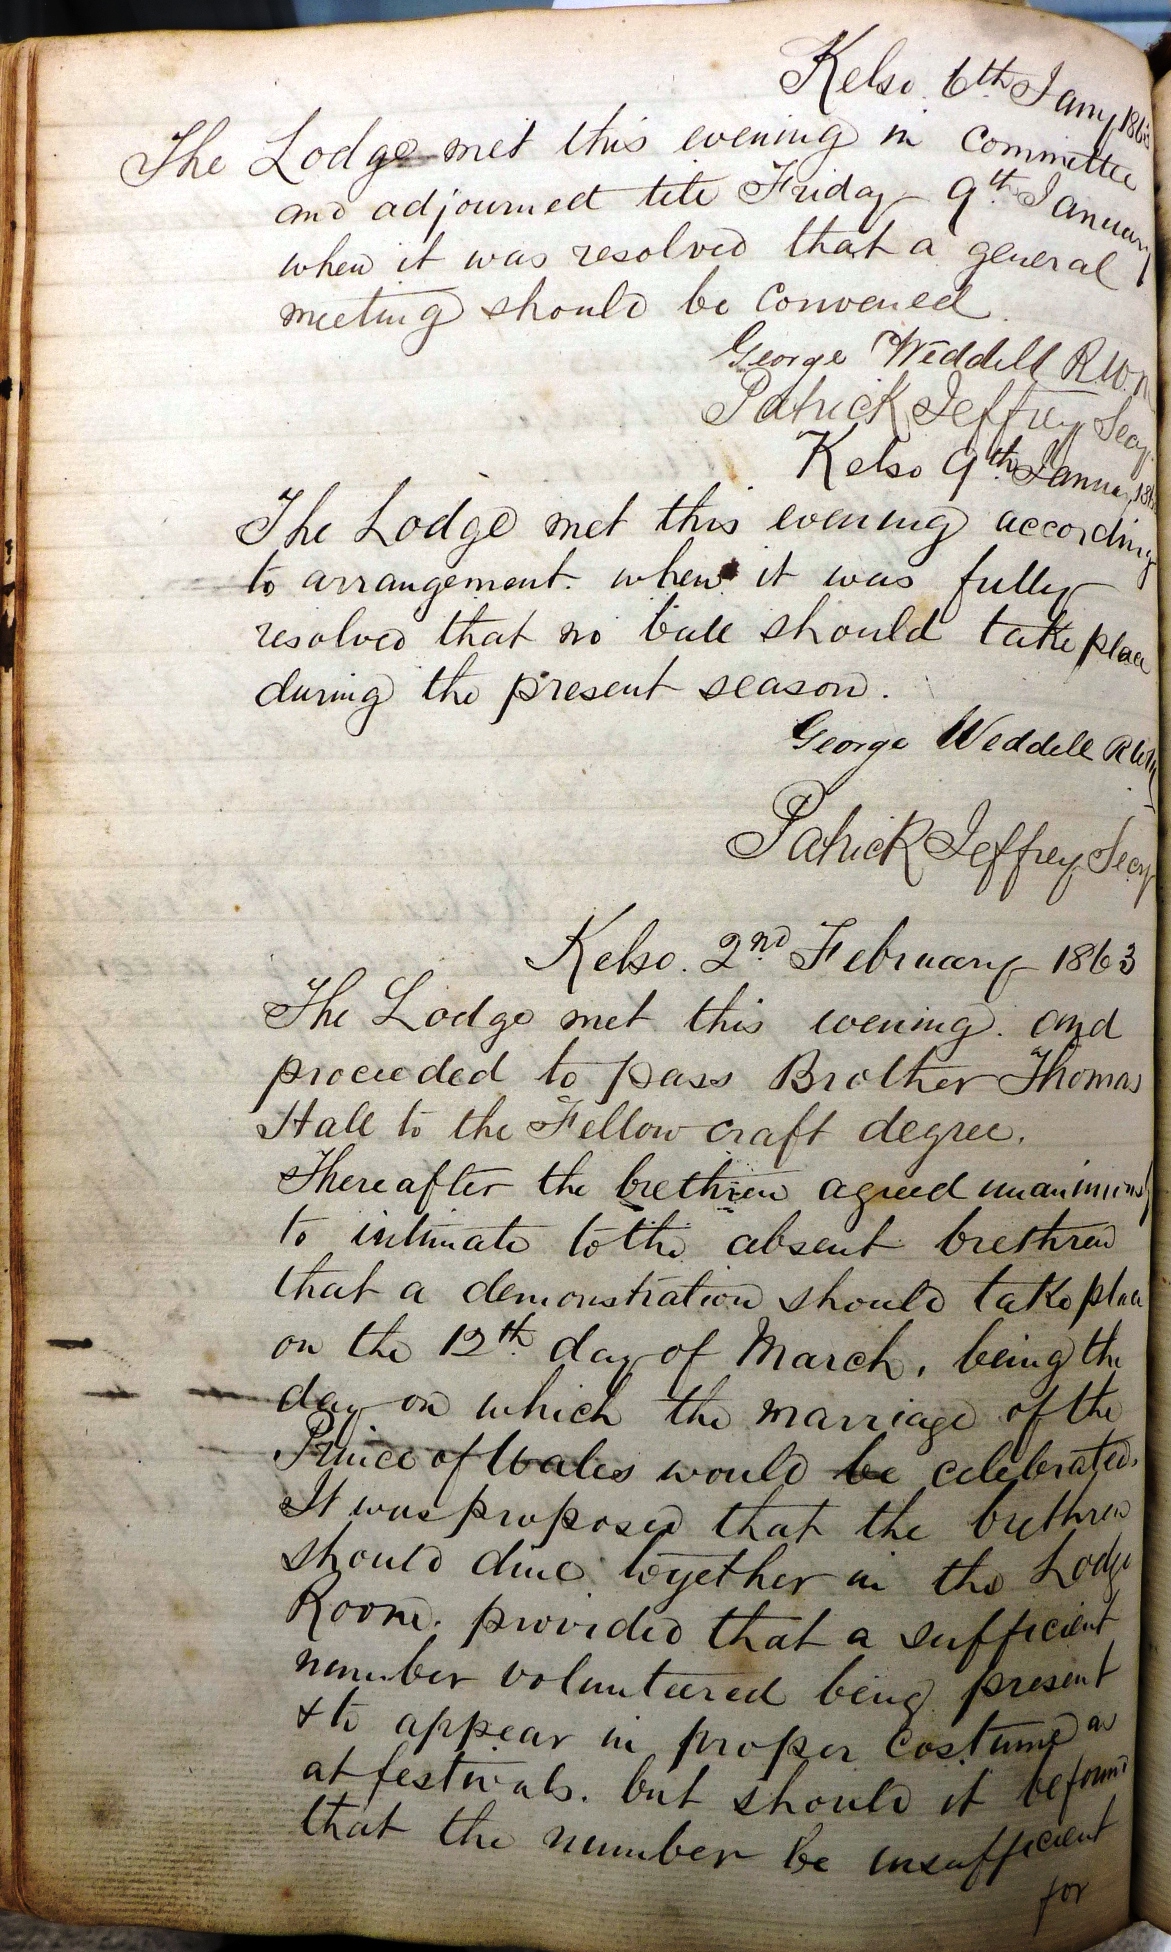 Kelso. 6th Jany 1863
The Lodge met this evening in committee
and adjourned till Friday 9th January
when it was resolved that a general
meeting should be convened.
George Weddell R.W.M
Patrick Jeffrey Secy.
Kelso 9th January 1863
The Lodge met this evening according
to arrangement. when it was fully
resolved that no ball should take place
during the present season.
George Weddell RWM
Patrick Jeffrey Secy
Kelso. 2nd February 1863
The Lodge met this evening. and
proceeded to pass Brother Thomas
Hall to the Fellow craft degree.
Thereafter the brethren agreed unanimously
to intimate to the absent brethren
that a demonstration should take place
on the 12th day of March, being the
day on which the marriage of the
Prince of Wales would be celebrated.
It was proposed that the brethren
should dine together in the Lodge
Room. provided that a sufficient
number volunteered being present
& to appear in proper costume as
at festivals. but should it be found
that the number be insufficient
for